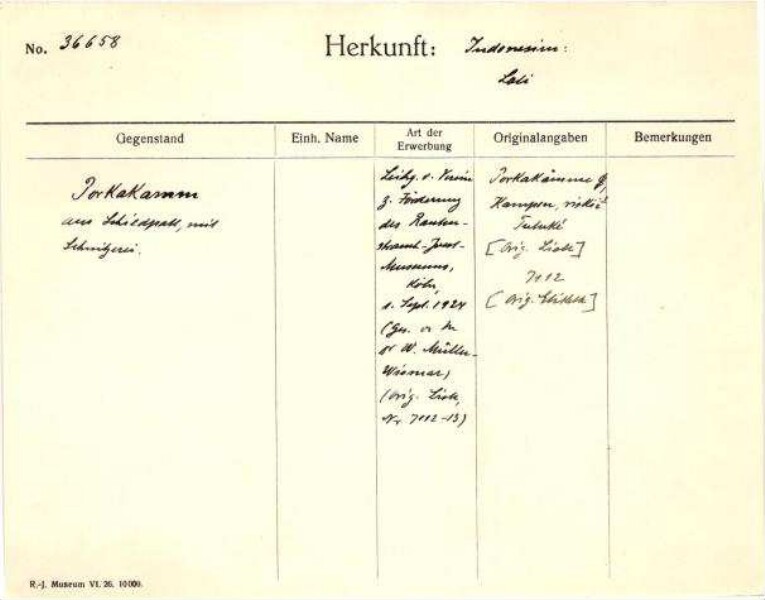 No. 36658
Herkunft: Indonesien:
Leti
Gegenstand
Einh. Name
Art der
Erwerbung
Originalangaben
Bemerkungen
Porkakamm
aus Schildpatt, mit
Schnitzerei.
Leihg. d. Verein
z. Förderung
des Rauten-
strauch-Joest-
Museums,
Köln,
d. Sept. 1924
(Ges. v.
W. Müller-
Wismar)
(Orig. Liste,
Nr. 7012-13)
Porkakämme
Kampen,
Tutuké
[Orig. Liste]
7012
[Orig. Etikett]
R.-J. Museum VI. 26. 10000.